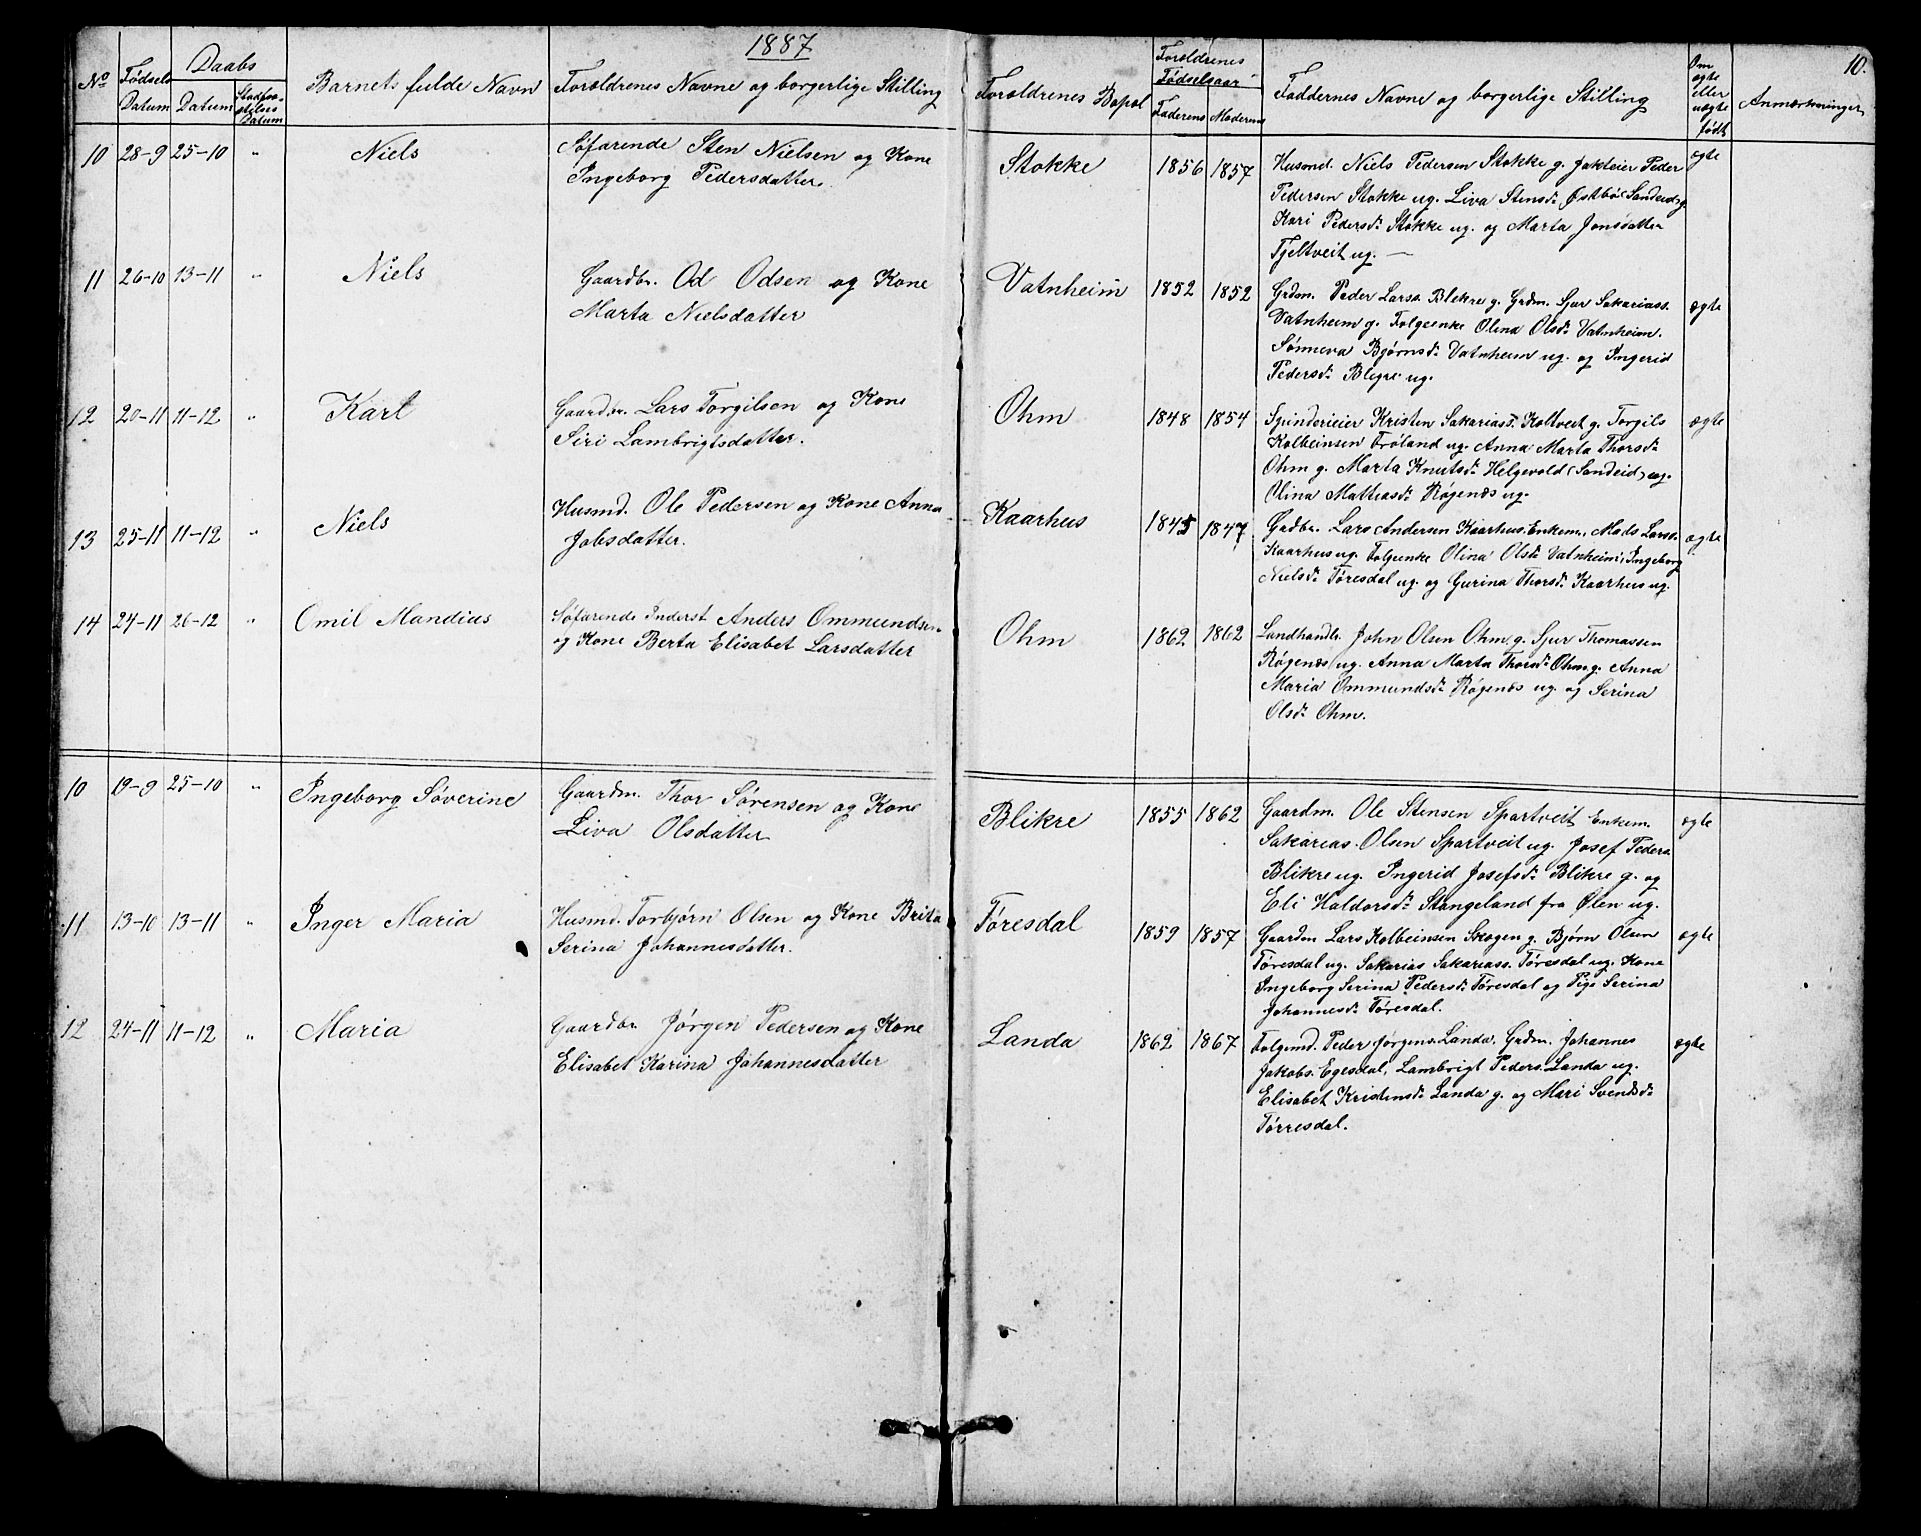 1887
10.
No
Fødsels
Datum
Daabs
Datum
Stadfæ-
stelses
Datum
Barnets fulde Navn
Forældrenes Navne og borgerlige Stilling
Forældrenes Bopæl
Forældrenes
Fødselsaar
Faderens
Moderens
Faddernes Navne og borgerlige Stilling
Om
ægte
eller
uægte
født
Anmærkninger
10 28-9 25-10 " Niels
Søfarende Sten Nielsen og Kone
Ingeborg Pedersdatter.
Stokke 1856 1857
Husmd. Niels Pedersen Stokke g. Jakteier Peder
Pedersen Stokke ug. Liva Stensdr Østbø (Sandeid) g.
Kari Pedersdr Stokke ug. og Marta Jonsdatter
Fjeltveit ug. —
ægte
11 26-10 13-11 " Niels
Gaardbr. Od Odsen og Kone
Marta Nielsdatter
Vatnheim 1852 1852
Grdm. Peder Larss. Blikre g. Grdm. Sjur Sakariass.
Vatnheim g. Folgeenke Olina Olsdr Vatnheim.
Sønneva Bjørnsdr Vatnheim ug. og Ingerid
Pedersdr Blikre ug.
ægte
12 20-11 11-12 " Karl
Gaardbr. Lars Torgilsen og Kone
Siri Lambrigtsdatter.
Ohm 1848 1854
Spinderieier Kristen Sakariass. Koltveit g. Torgils
Kolbeinsen Frøland ug. Anna Marta Thorsdr
Ohm g. Marta Knutsdr Helgevold (Sandeid) ug.
Olina Mattiasdr Røgenæs ug.
ægte
13 25-11 11-12 " Niels
Husmd. Ole Pedersen og Kone Anna
Jobsdatter.
Kaarhus 1845 1847
Grdbr. Lars Andersen Kaarhus. Enkem. Mads Larss.
Kaarhus ug. Folgeenke Olina Olsdr Vatnheim, Ingeborg
Nielsdr Tøresdal ug. og Gurina Thorsdr Kaarhus ug.
ægte
14 24-11 26-12 " Omil Mandius
Søfarende Inderst Anders Ommundsen
og Kone Berta Elisabet Larsdatter
Ohm 1862 1862
Landhandlr. John Olsen Ohm g. Sjur Thomassen
Røgenæs ug. Anna Marta Thorsdr Ohm g. Anna
Maria Ommundsdr Røgenæs ug. og Serina
Olsdr Ohm.
10 19-9 25-10 " Ingeborg Søverine
Gaardm. Thor Sørensen og Kone
Liva Olsdatter
Blikre 1855 1862
Gaardm. Ole Stensen Spartveit Enkem.
Sakarias Olsen Spartveit ug. Josef Peders.
Blikre ug. Ingerid Josefsdr Blikre g. og
Eli Haldorsdr Stangeland fra Ølen ug.
ægte
11 13-10 13-11 " Inger Maria
Husmd. Torbjørn Olsen og Kone Brita
Serina Johannesdatter.
Tøresdal 1859 1857
Gaardm Lars Kolbeinsen Skogen g. Bjørn Olsen
Tøresdal ug. Sakarias Sakariass. Tøresdal ug. Kone
Ingeborg Serina Pedersdr Tøresdal og Pige Serina
Johannesdr Tøresdal.
ægte
12 24-11 11-12 " Maria
Gaardbr Jørgen Pedersen og Kone
Elisabet Karina Johannesdatter
Landa 1862 1867
Folgemd. Peder Jørgens. Landa. Grdm. Johannes
Jakobs. Egesdal, Lambrigt Peders. Landa ug.
Elisabet Kristensdr Landa g. og Mari Svendsdr
Tørresdal.
ægte